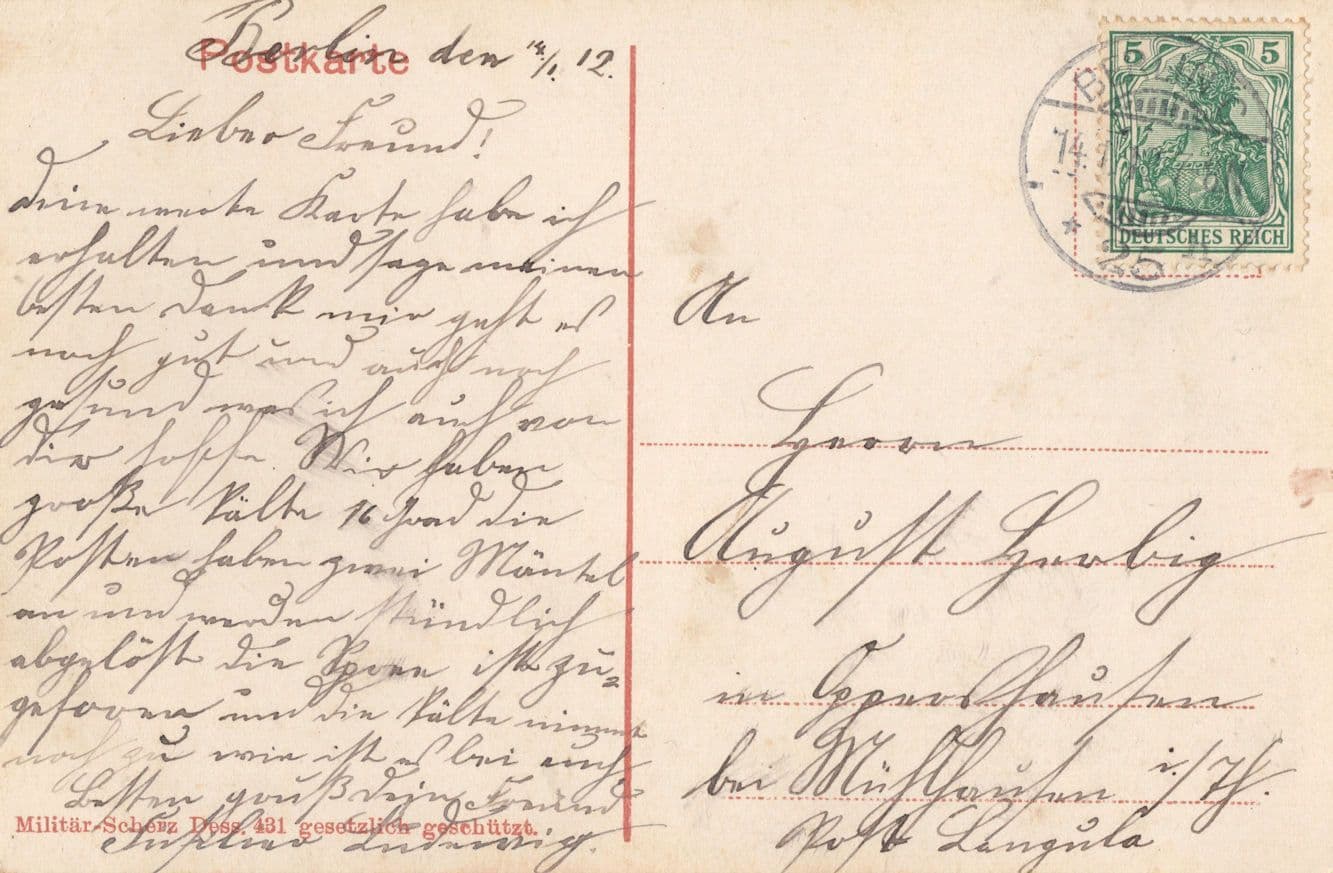 Postkarte
Berlin den 14./1. 12.
Lieber Freund!
deine werte Karte habe ich
erhalten und sage meinen
besten Dank mir geht es
noch gut und auch noch
gesund was ich auch von
dir hoffe. Wir haben
große Kälte 16 Grad die
Posten haben zwei Mäntel
an und werden stündlich
abgelöst die Spree ist zu-
geforen und die Kälte nimmt
noch zu wie ist es bei euch
Besten gruß dein Freund
Ludewig.
Militär-Scherz Dess. 431 gesetzlich geschützt.
5 5
DEUTSCHES REICH
14.1.
25
An
Herrn
August Herbig
in Oppershausen
bei Mühlhausen i./Th.
Post Langula